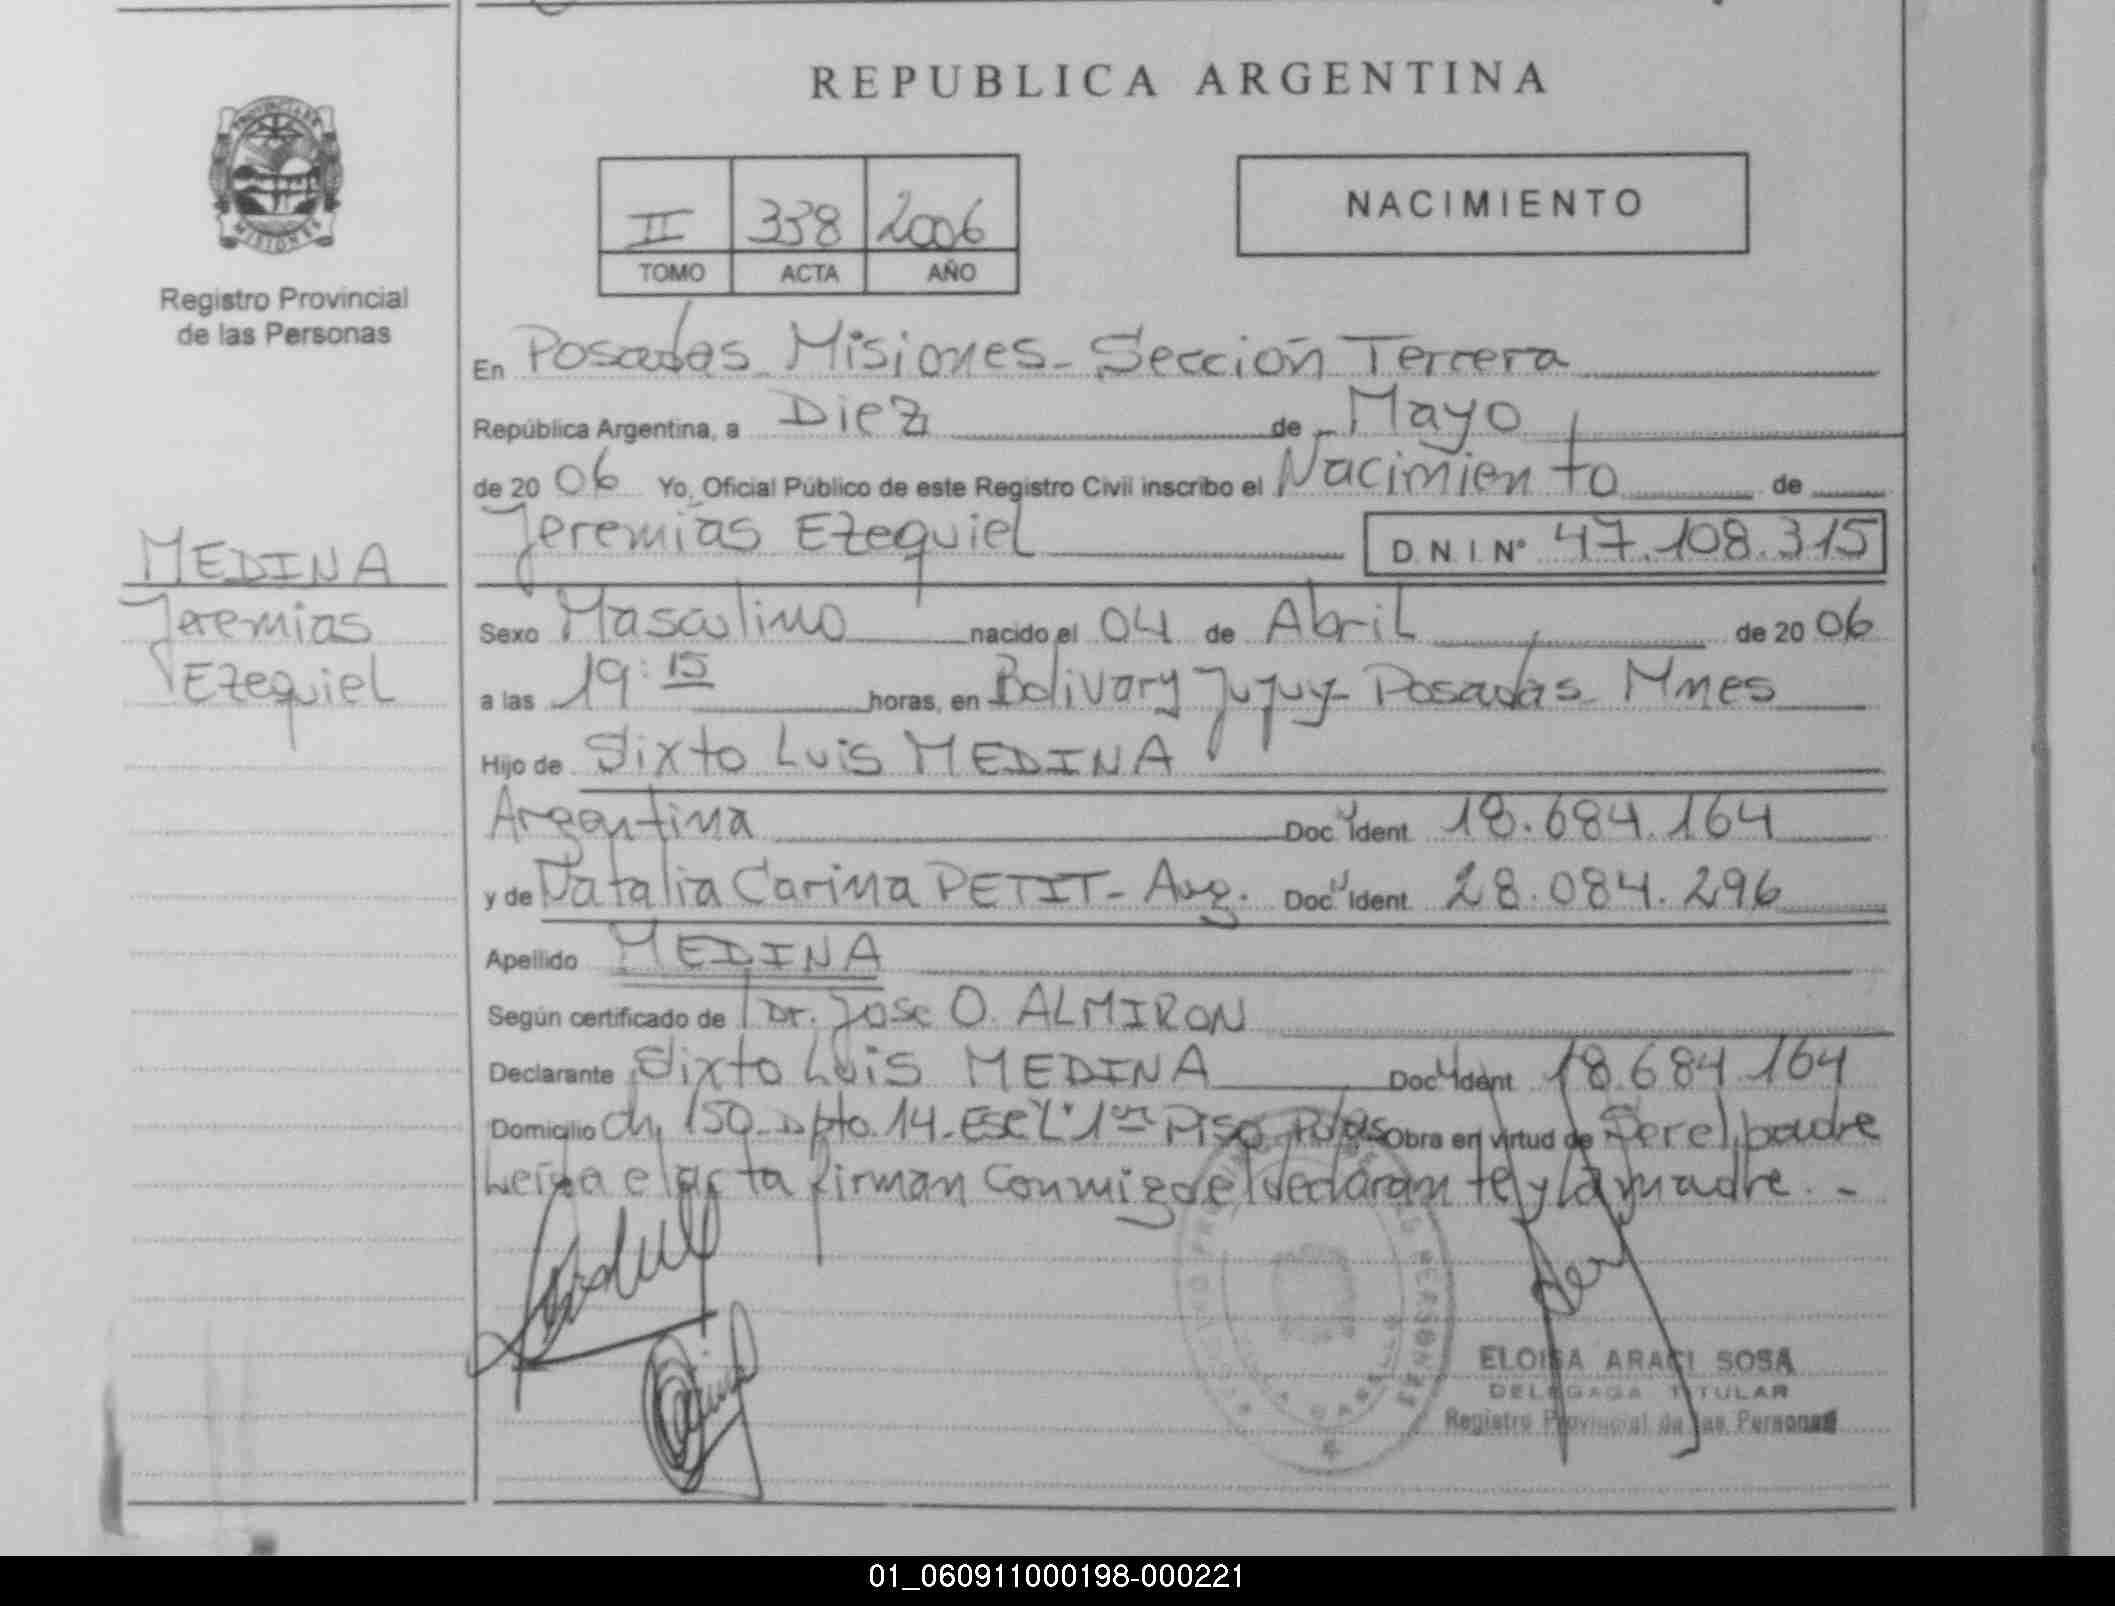 REPUBLICA ARGENTINA
PROVINCIA DE
MISIONES
Registro Provincial
de las Personas
II 338 2006
TOMO ACTA AÑO
NACIMIENTO
En Posadas Misiones - Sección Tercera
República Argentina, a Diez de Mayo
de 2006 Yo, Oficial Público de este Registro Civil inscribo el Nacimiento de
Jeremías Ezequiel D.N.I. Nº 47.108.315
MEDINA
Jeremias
Ezequiel
Sexo Masculino nacido el 04 de Abril de 2006
a las 19:15 horas, en Bolivar y Jujuy - Posadas - Mnes
Hijo de Sixto Luis MEDINA
Argentina Doc. Ident. 18.684.164
y de Natalia Carina PETIT - Arg. Doc. Ident. 28.084.296
Apellido MEDINA
Según certificado de Dr. Jose O. ALMIRON
Declarante Sixto Luis MEDINA Doc. Ident. 18.684.164
Domicilio Ch. 150 - Dpto. 14 - Esc "L" 1er Piso Pdas Obra en virtud de Ser el padre
Leída el acta firman conmigo el declarante y la madre. -
ELOISA ARACI SOSA
DELEGADA TITULAR
Registro Provincial de las Personas
01_060911000198-000221